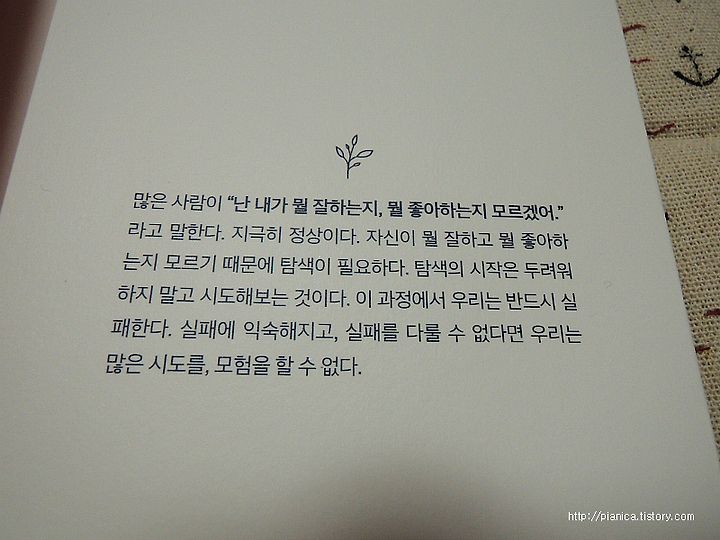 많은 사람이 “난 내가 뭘 잘하는지, 뭘 좋아하는지 모르겠어.”
라고 말한다. 지극히 정상이다. 자신이 뭘 잘하고 뭘 좋아하
는지 모르기 때문에 탐색이 필요하다. 탐색의 시작은 두려워
하지 말고 시도해보는 것이다. 이 과정에서 우리는 반드시 실
패한다. 실패에 익숙해지고, 실패를 다룰 수 없다면 우리는
많은 시도를, 모험을 할 수 없다.
http://pianica.tistory.com